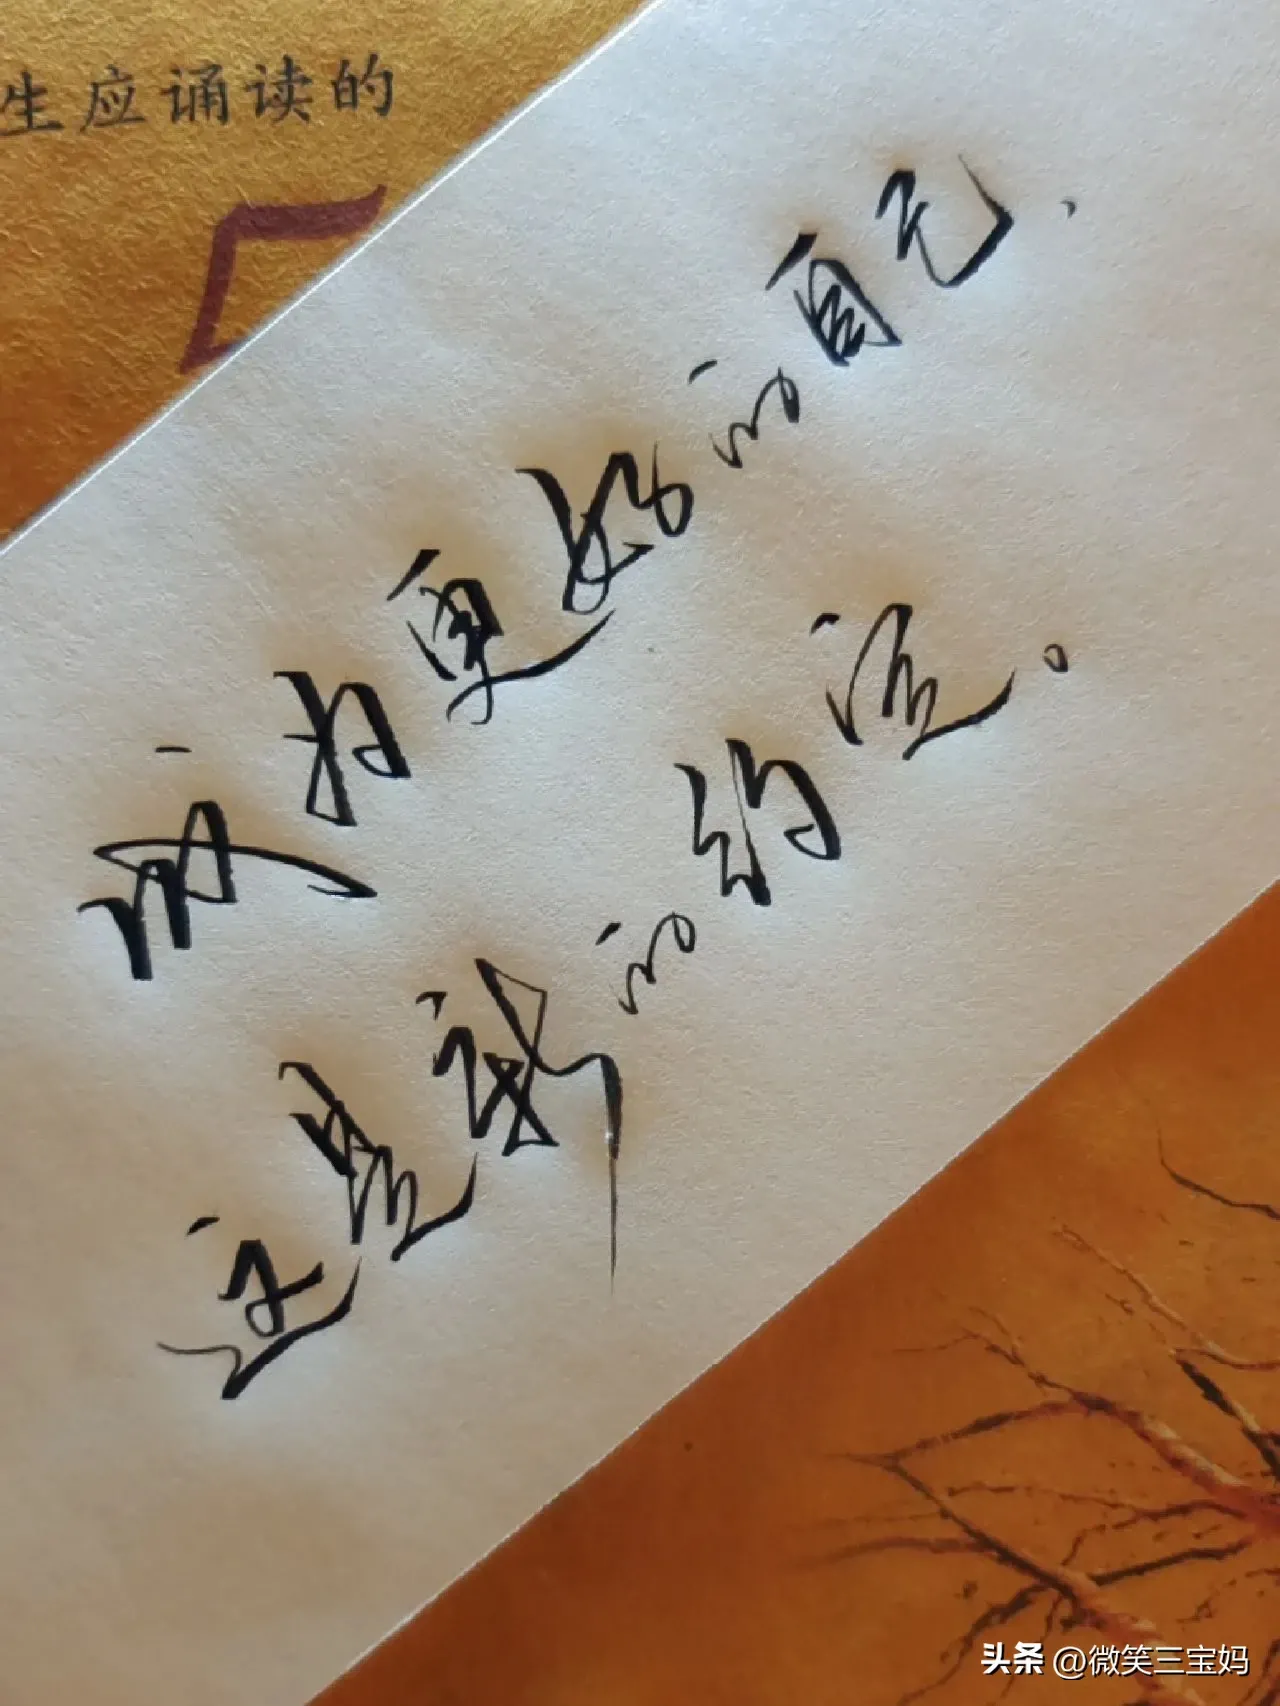 生应诵读的
成为更好的自己,
这是新的约定。
头条 @微笑三宝妈